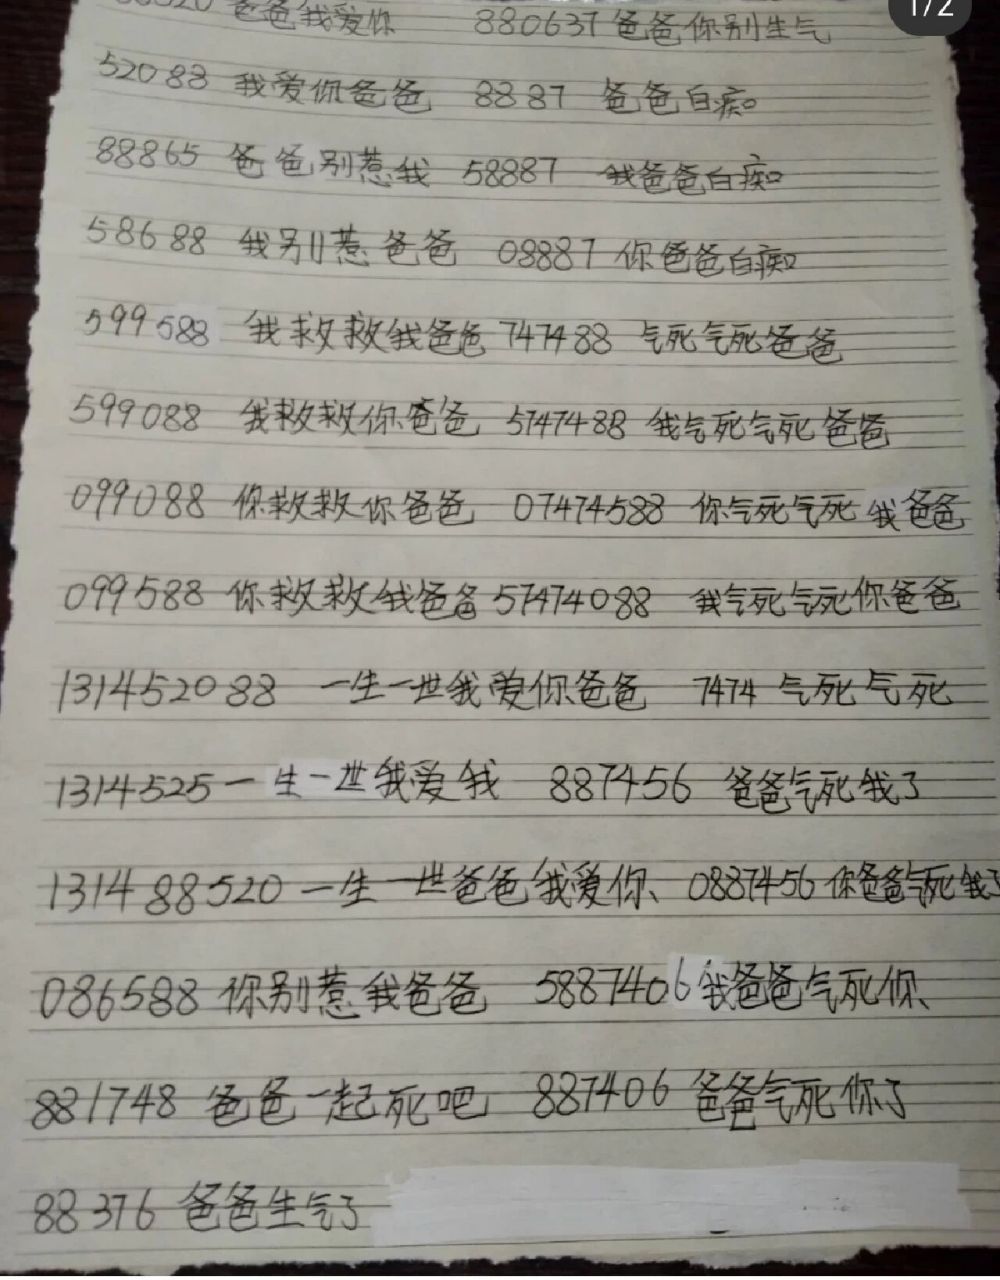 88520 爸爸我爱你 880637 爸爸你别生气
1/2
52088 我爱你爸爸 8887 爸爸白痴
88865 爸爸别惹我 58887 我爸爸白痴
58688 我别惹爸爸 08887 你爸爸白痴
599588 我救救我爸爸 747488 气死气死爸爸
599088 我救救你爸爸 5747488 我气死气死爸爸
099088 你救救你爸爸 07474588 你气死气死我爸爸
099588 你救救我爸爸 57474088 我气死气死你爸爸
131452088 一生一世我爱你爸爸 7474 气死气死
1314525 一生一世我爱我 887456 爸爸气死我了
131488520 一生一世爸爸我爱你、 0887456 你爸爸气死我了
086588 你别惹我爸爸 5887406 我爸爸气死你、
881748 爸爸一起死吧 887406 爸爸气死你了
88376 爸爸生气了